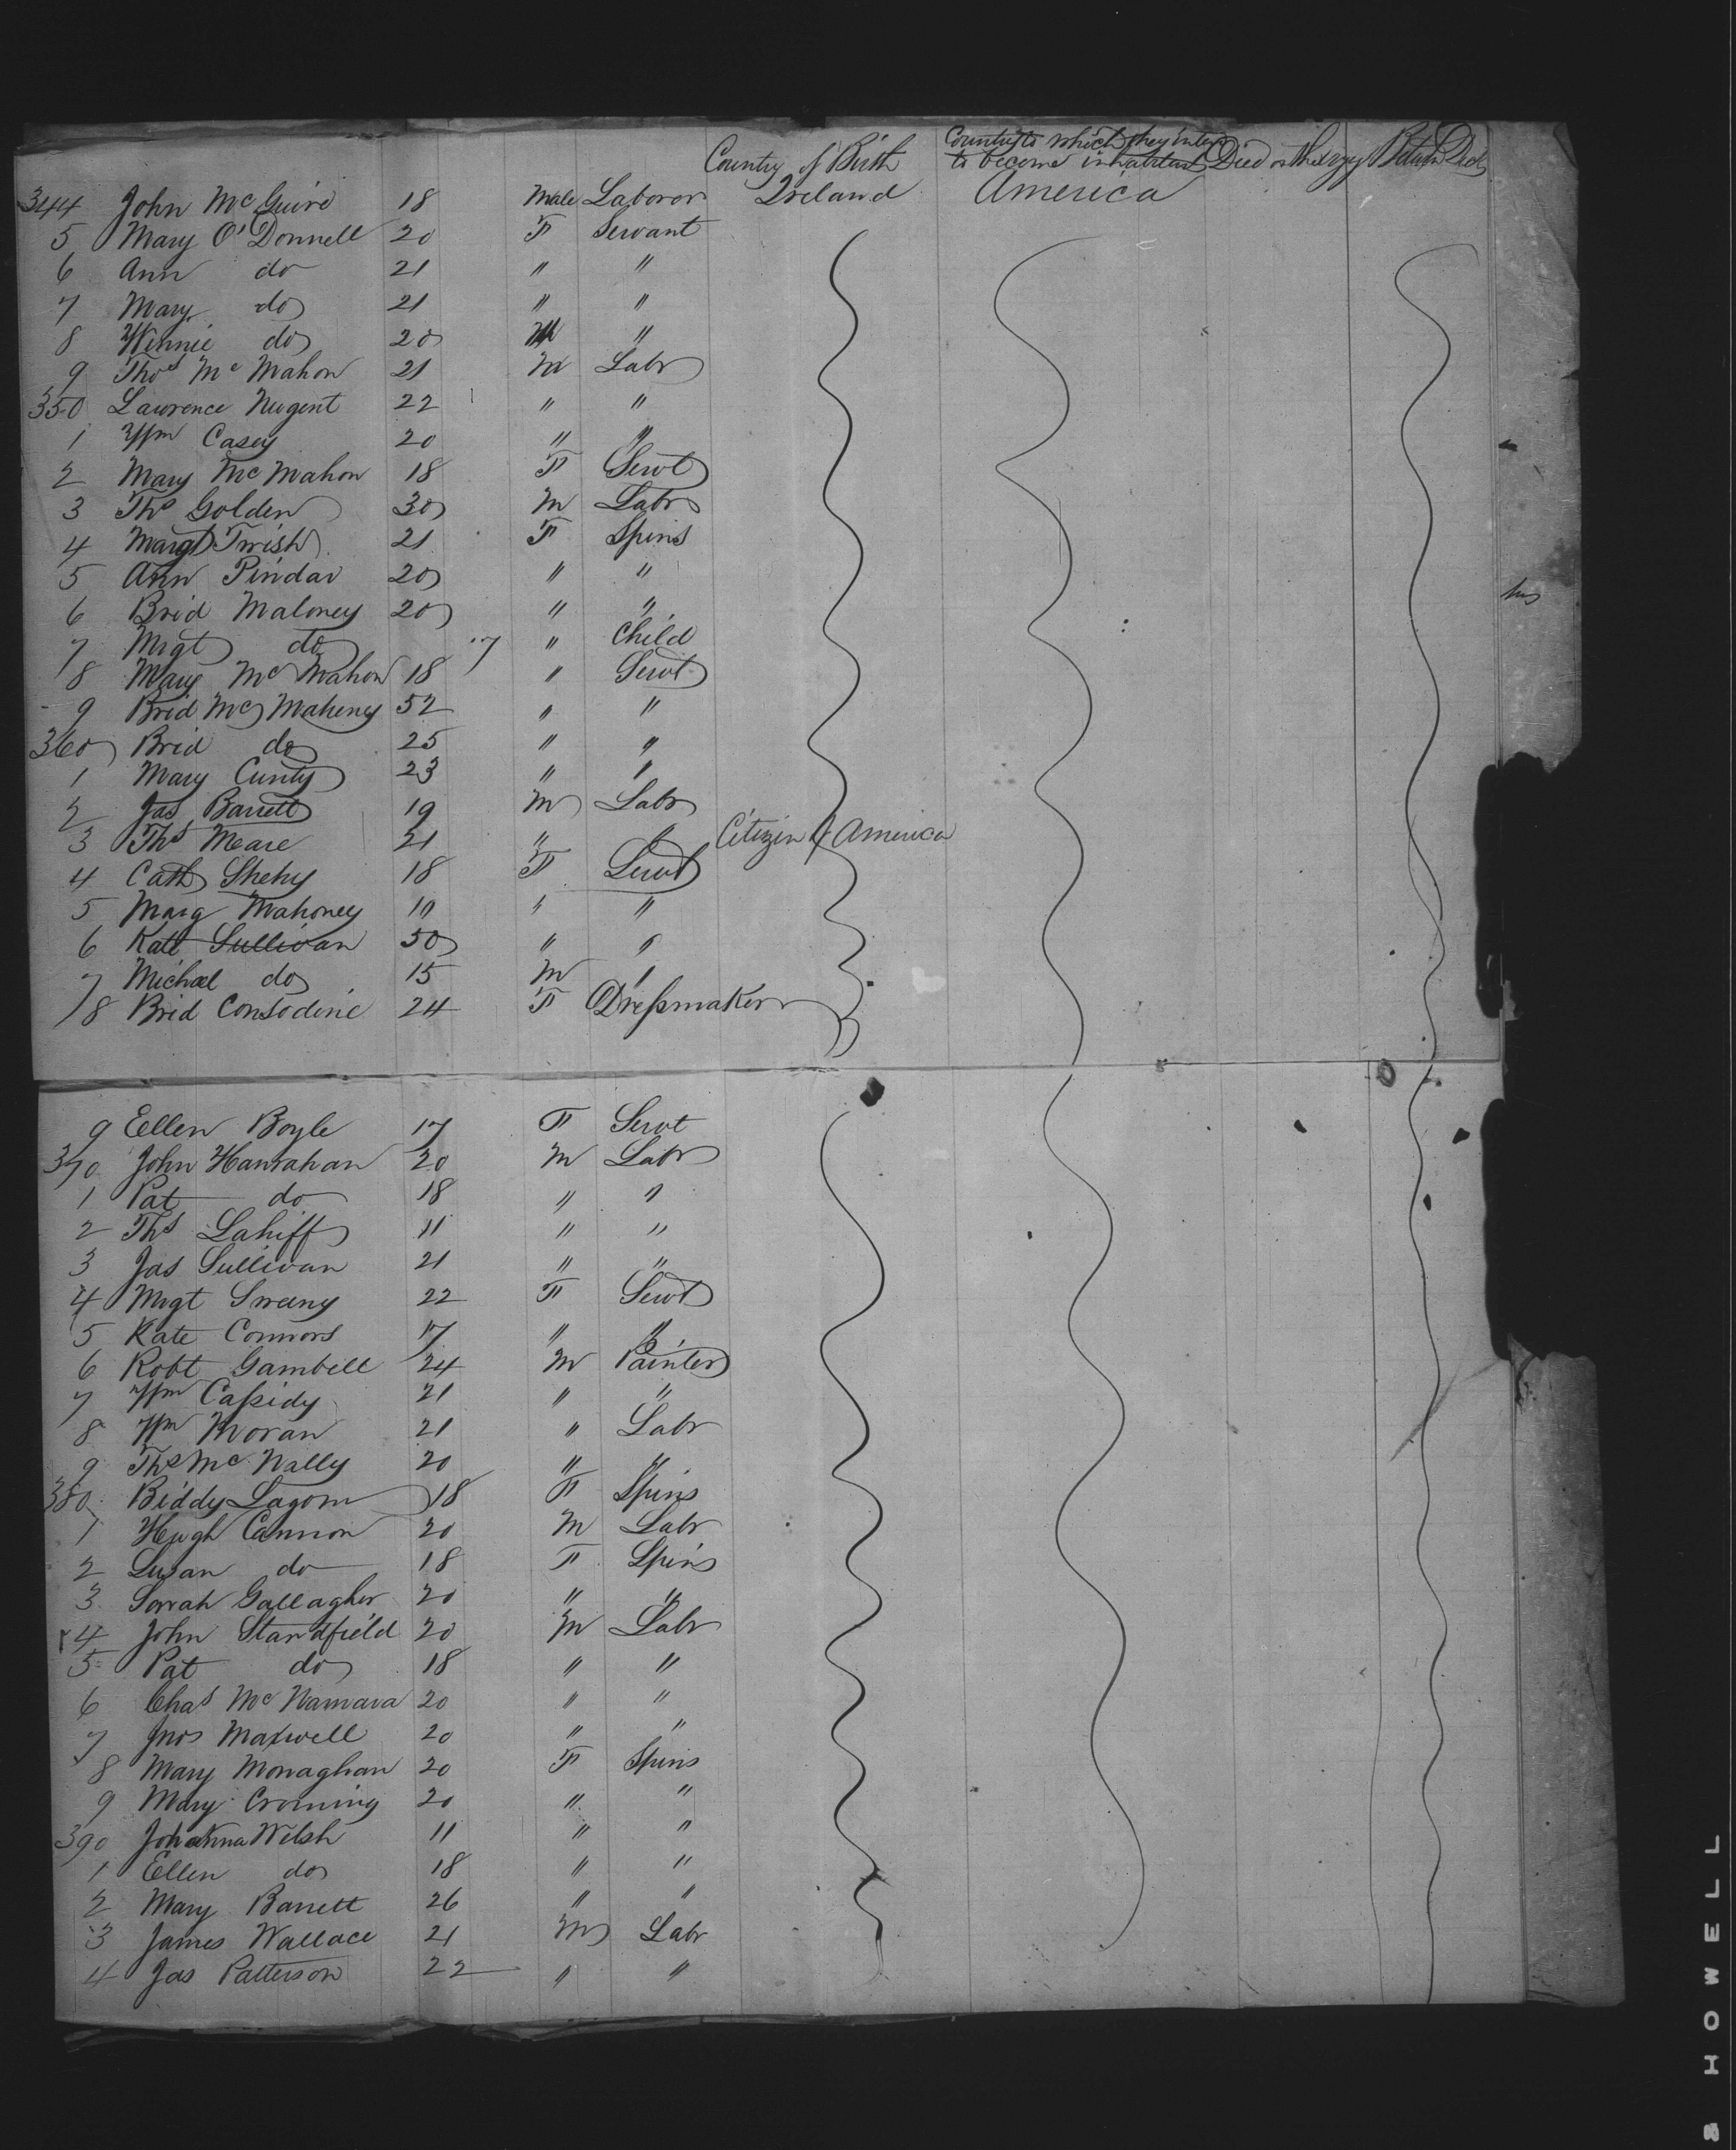 Country of Birth Country to which they inten to become inhabitant Died on the voy
344 John McGuire 18 Male Laborer Ireland America
5 Mary O'Donnell 20 F Servant
6 Ann do 21 " "
7 Mary do 21 " "
8 Winnie do 20 "
9 Thos McMahon 21 M Labr
350 Lawrence Nugent 22 " "
1 Wm Casey 20 " "
2 Mary McMahon 18 F Servt
3 Ths Golden 30 M Labr
4 Margt 21 F Spins
5 Ann Pindar 20 " "
6 Brid Maloney 20 " "
7 Mrgt do 7 " Child
8 Mary McMahon 18 " Servt
9 Brid McMaheny 52 " "
360 Brid do 25 " "
1 Mary Cunty 23 " "
2 Jas Barrett 19 M Labr
3 Ths Meare 21 " " Citizin of America
4 Cath Shehy 18 F Servt
5 Marg Mahoney " "
6 Kate Sullivan 50 " "
7 Michael do 15 M "
8 Brid Consodine 24 F Dressmaker
9 Ellen Boyle 17 F Servt
370 John Hanrahan 20 M Labr
1 Pat do 18 " "
2 Ths Lahiff 11 " "
3 Jas Sullivan 21 " "
4 Mrgt Sweeny 22 F Servt
5 Kate Connors 17 " "
6 Robt Gambell 24 M Painter
7 Wm Cassidy 21 " "
8 Wm Moran 21 " Labr
9 Ths McNally 20 " "
380 Biddy Lagom 18 F Spins
1 Hugh Cannon 20 M Labr
2 Susan do 18 F Spins
3 Sarah Gallagher 20 " "
4 John Standfield 20 M Labr
5 Pat do 18 " "
6 Chas McNamara 20 " "
7 Jnos Maxwell 20 " "
8 Mary Monaghan 20 F Spins
9 Mary Croining 20 " "
390 Johanna Welsh 11 " "
1 Ellen do 18 " "
2 Mary Barrett 26 " "
3 James Wallace 21 M Labr
4 Jas Patterson 22 " "
HOWELL